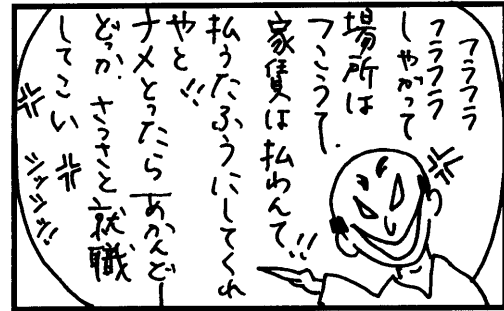 フラフラ
フラフラ
しやがって
場所は
つこうて、
家賃は払わんて!!
払うたふうにしてくれ
やと!!
ナメとったらあかんどー
どっか、さっさと就職
してこい
シッシッ!